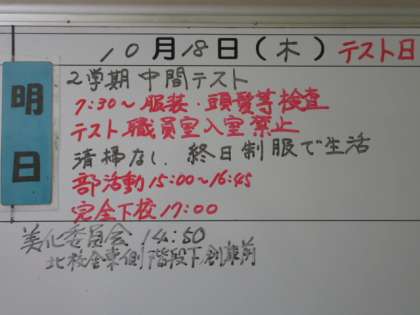 10月18日(木) テスト日
明日
2学期 中間テスト
7:30～服装・頭髪等検査
テスト 職員室入室禁止
清掃なし、終日制服で生活
部活動 15:00～16:45
完全下校 17:00
美化委員会 14:50
北校舎東側 階段下倉庫前